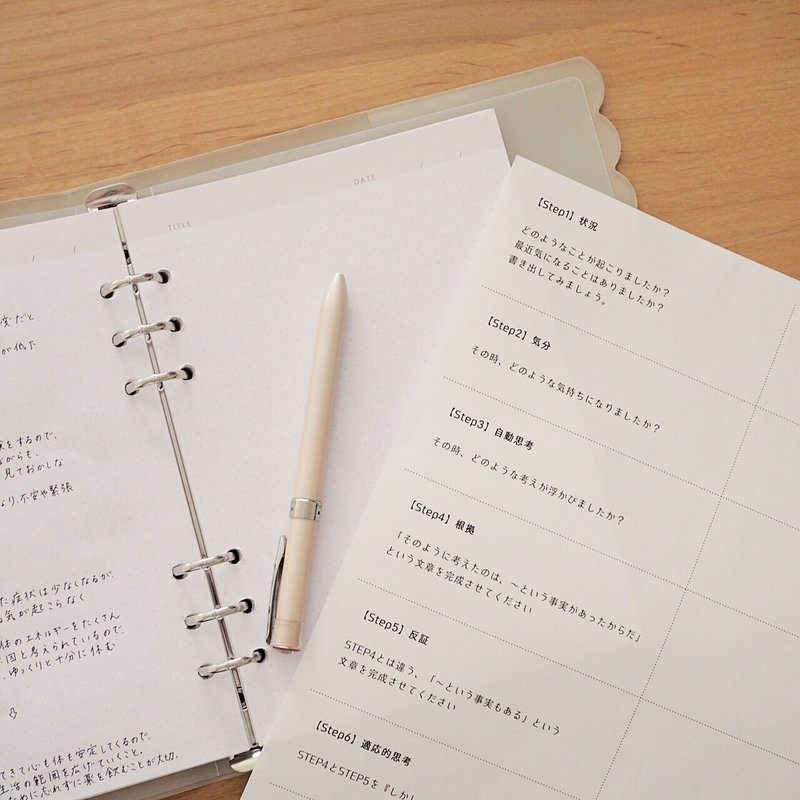 TITLE
DATE / /
/ /
実だと
が低下
をするので、
ながらも、
見ておかしな
なり、不安や緊張
た症状は少なくなるが、
気が起こらなく
体のエネルギーをたくさん
因と考えられているので、
ゆっくりと十分に休む
⇩
てきて心も体も安定してくるので、
生活の範囲を広げていくこと。
ために忘れずに薬を飲むことが大切。
【Step1】状況
どのようなことが起こりましたか？
最近気になることはありましたか？
書き出してみましょう。
【Step2】気分
その時、どのような気持ちになりましたか？
【Step3】自動思考
その時、どのような考えが浮かびましたか？
【Step4】根拠
「そのように考えたのは、～という事実があったからだ」
という文章を完成させてください
【Step5】反証
STEP4とは違う、「～という事実もある」という
文章を完成させてください
【Step6】適応的思考
STEP4とSTEP5を『しかし